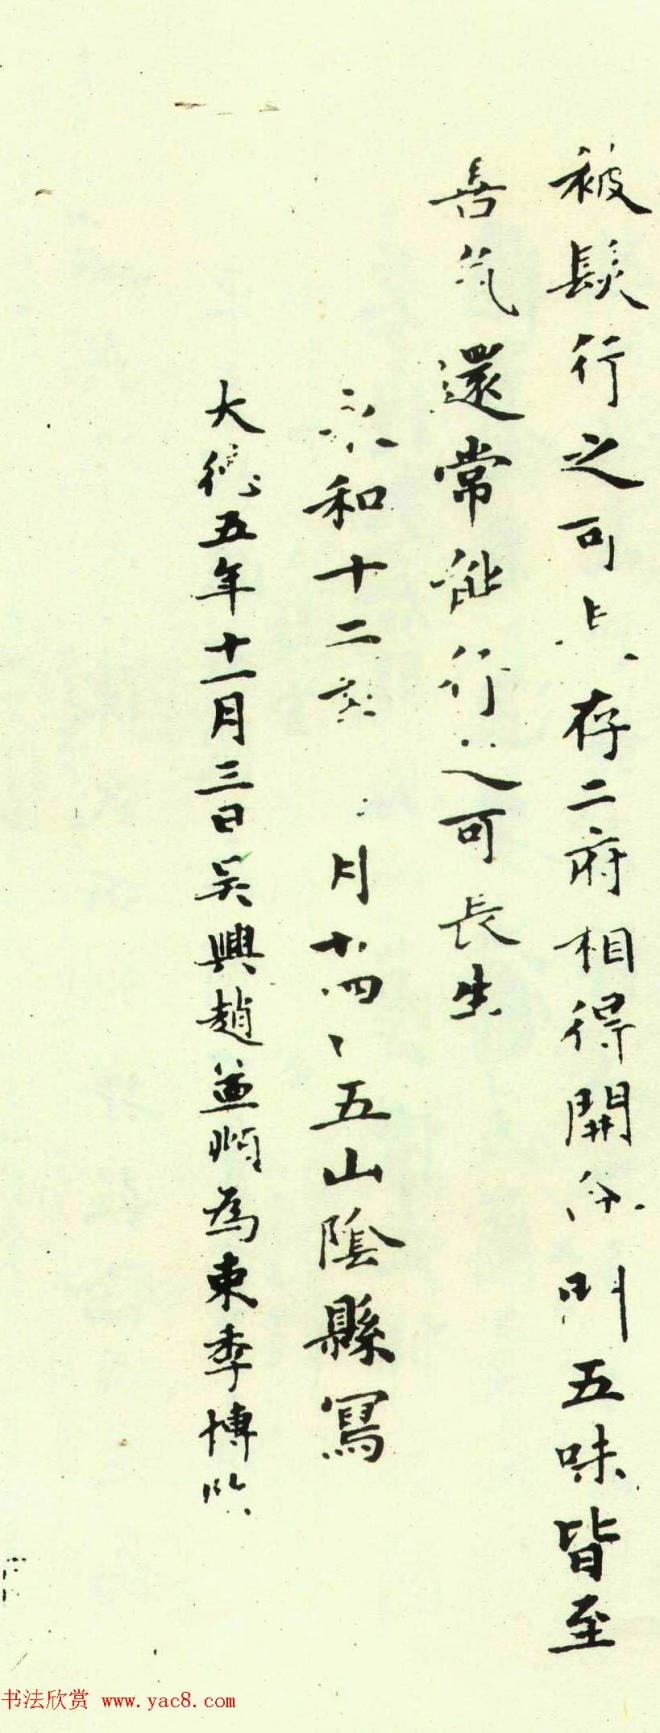 被髮行之可長存二府相得開命門五味皆至
善气還常能行之可長生
永和十二年 月 四 五山陰縣寫
大德五年十一月三日吳興趙孟頫為束季博臨
书法欣赏 www.yac8.com